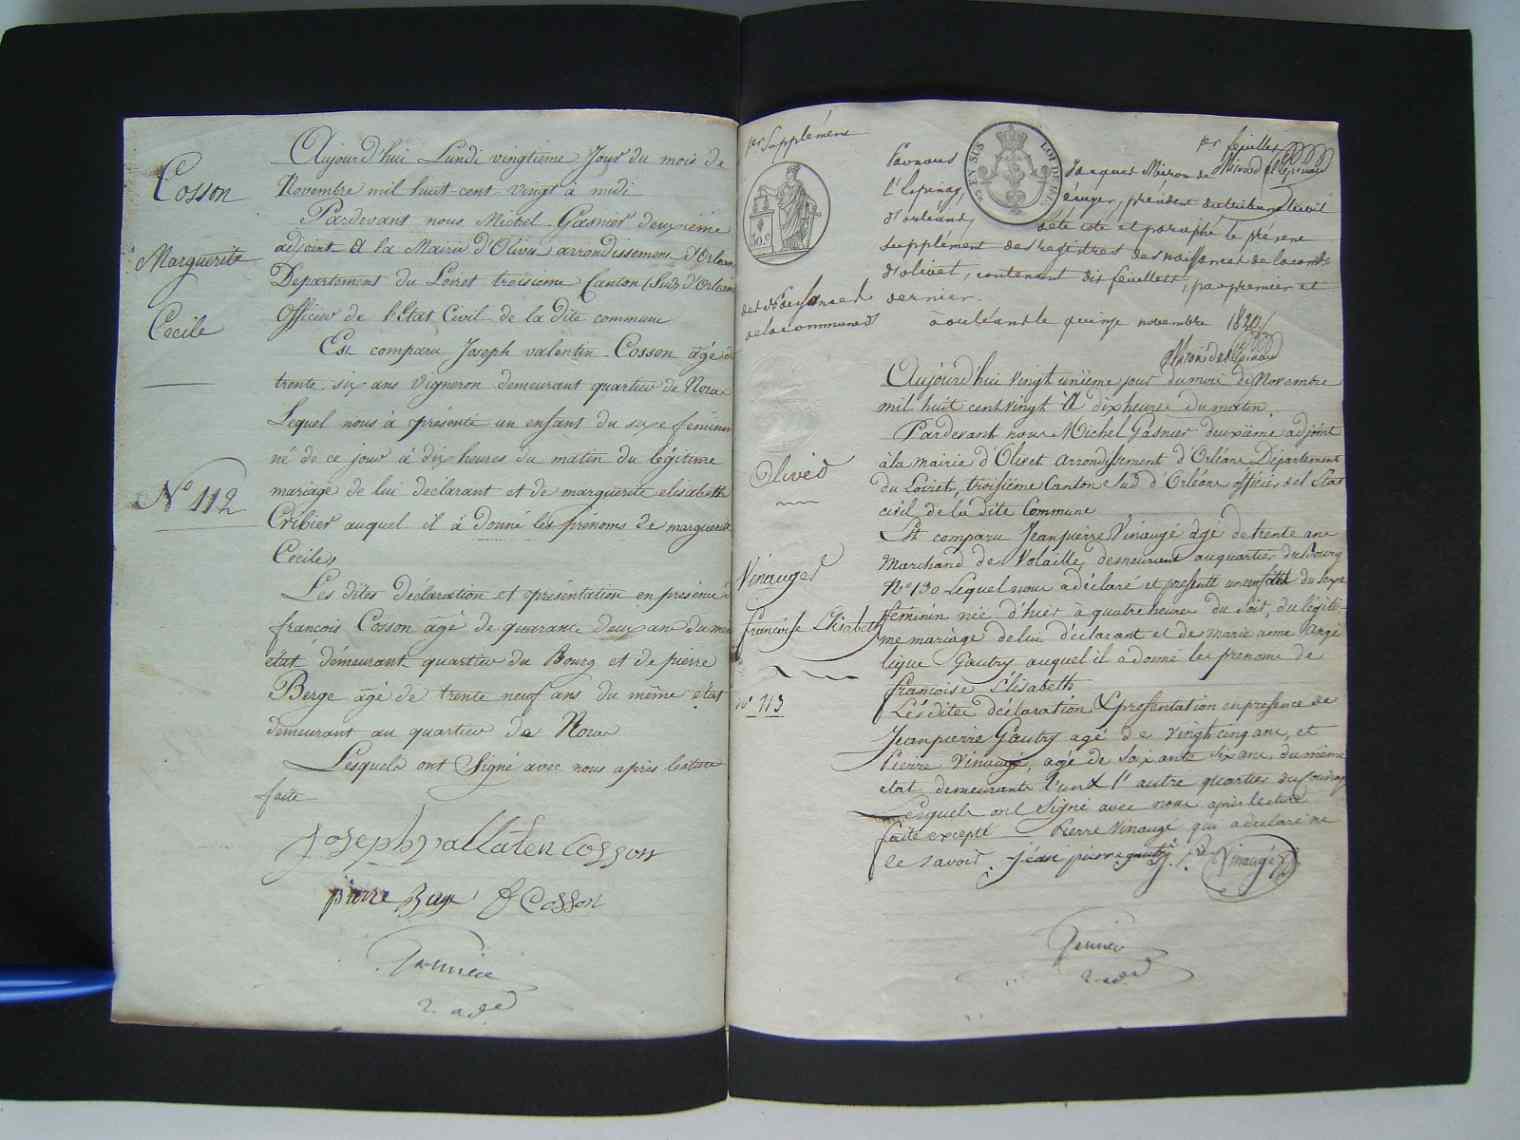 Cosson
Marguerite
Cecile
N° 112
Aujourd'hui Lundi vingtième Jour du mois de
Novembre mil huit-cent vingt à midi
Pardevant nous Michel Gasnier deuxième
adjoint à la Mairie d'Olivet arrondissement d'Orléans
Département du Loiret troisieme Canton (Sud) d'Orléans
Officier de l'Etat Civil de la dite commune
Est comparu Joseph valentin Cosson agé de
trente six ans vigneron demeurant quartier de
Lequel nous à présenté un enfant du sexe féminin
né de ce jour à dix heures du matin du légitime
mariage de lui déclarant et de marguerite elisabeth
Cribier auquel il à donné les prénoms de marguerite
Cecile
Les dites déclaration et présentation en présence de
françois Cosson âgé de quarante deux ans du même
état demeurant quartier du Bourg et de pierre
Berge agé de trente neuf ans du même état
demeurant au quartier de
Lesquels ont Signé avec nous après lecture
faite
Joseph vallaten cosson
pierre Berge f Cosson
2. adj
1er Supplément
1er feuillet
EN SUS
LOI DE
50 c
Par nous Jacques Miron de
l'Epinay, écuyer, président du tribunal civil
d'orléans, a été coté et paraphé le présent
supplément des registres des naissances de la comne
d'olivet, contenant dix feuillets, par premier et
dernier.
des Naissances
de la commune d'
à orléans le quinze novembre 1820
Miron de l'Epinay
Olivet
Vinauger
françoise Elisabeth
n° 113
Aujourd'hui vingt unième jour du mois de Novembre
mil huit cent vingt à dix heures du matin.
Pardevant nous Michel Gasnier deuxième adjoint
à la mairie d'Olivet arrondissement d'Orléans Département
du Loiret, troisième Canton Sud d'Orléans officier del Etat
civil de la dite Commune
Est comparu Jean pierre Vinaugé agé de trente ans
Marchand de Volaille, demeurant au quartier du bourg
N° 130 Lequel nous a déclaré et présenté un enfant du sexe
féminin née d'hier à quatre heures du soir, du légiti-
me mariage de lui déclarant et de marie anne Angé
lique Gautry auquel il a donné les prénoms de
françoise Elisabeth
Les dites déclaration & présentation en présence de
Jean pierre Gautry agé de vingt cinq ans, et
Pierre Vinaugé, agé de soixante six ans du même
etat demeurants l'un & l'autre quartier du
Lesquels ont signé avec nous après lecture
faite excepté Pierre Vinaugé qui a déclaré ne
le savoir. jéan pierre gautry Vinaugé
2. adj